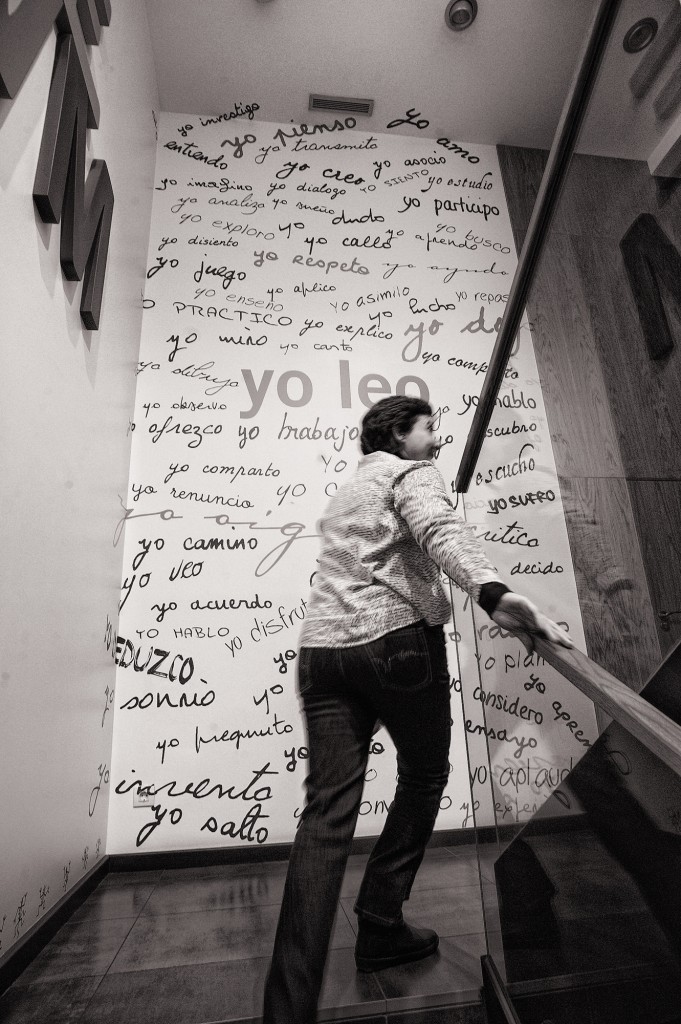 yo investigo
yo pienso
yo amo
entiendo
yo transmito
yo creo
yo asocio
yo imagino yo dialogo YO SIENTO yo estudio
yo analizo yo sueño dudo yo participo
yo exploro yo
yo busco
yo disiento yo callo yo aprendo
yo juego yo respeto yo ayudo
yo aplico
yo enseño yo asimilo yo lucho yo repas
O PRACTICO yo explico yo do
yo miro yo canto
yo dibujo yo leo
yo observo
yo hablo
ofrezco yo trabajo
scubro
yo comparto yo
escucho
yo renuncio yo
yo SUFRO
yo oig
yo camino
critico
yo veo
decido
yo acuerdo
YO HABLO yo disfrut
EDUZCO
yo plan
sonrío yo
considero
yo apren
yo pregunto yo
ensayo
invento
yo aplaud
yo salto